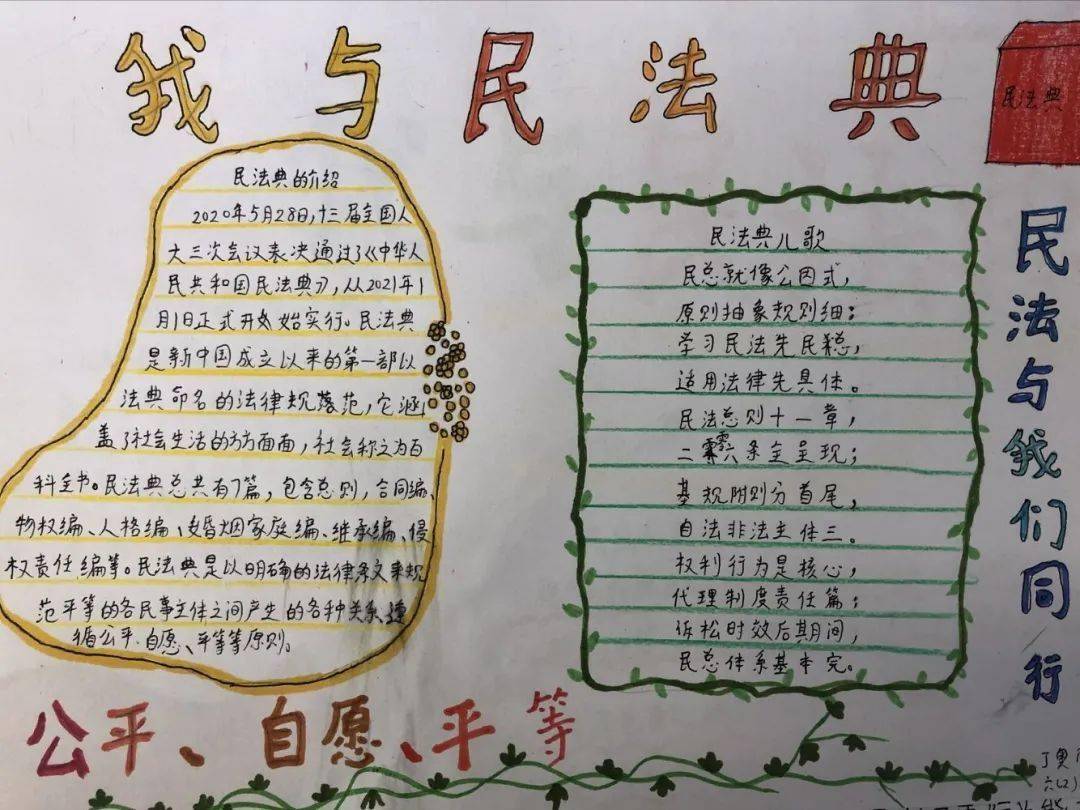 我与民法典
民法典
民法典的介绍
2020年5月28日,十三届全国人
大三次会议表决通过了《中华人
民共和国民法典》,从2021年1
月1日正式开始实行。民法典
是新中国成立以来的第一部以
法典命名的法律规落范,它涵
盖了社会生活的方方面面,社会称之为百
科全书。民法典总共有7篇,包含总则,合同编、
物权编、人格编、婚烟家庭编、继承编、侵
权责任编等。民法典是以明确的法律条文来规
范平等的各民事主体之间产生的各种关系,遵
循公平、自愿、平等等原则。
民法典儿歌
民总就像公因式,
原则抽象规则细;
学习民法先民总,
适用法律先具体。
民法总则十一章,
二零六条全呈现;
基规附则分首尾,
自法非法主体三。
权利行为是核心,
代理制度责任篇;
诉松时效后期间,
民总体系基本完。
民法与我们同行
公平、自愿、平等
六(2)